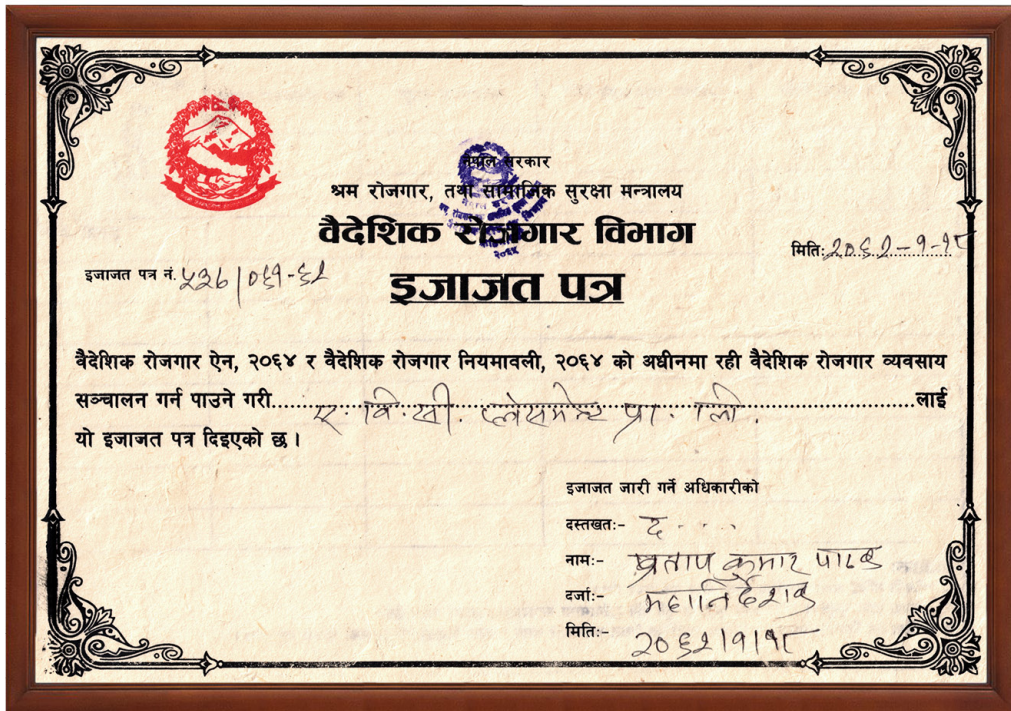 नेपाल सरकार
श्रम रोजगार, तथा सामाजिक सुरक्षा मन्त्रालय
वैदेशिक रोजगार विभाग
मिति:२०६२-१-१८
इजाजत पत्र नं. ५३७/०६१-६२
इजाजत पत्र
वैदेशिक रोजगार ऐन, २०६४ र वैदेशिक रोजगार नियमावली, २०६४ को अधीनमा रही वैदेशिक रोजगार व्यवसाय
सञ्चालन गर्न पाउने गरी ए. वि. सी. प्लेसमेन्ट प्रा. लि. लाई
यो इजाजत पत्र दिइएको छ ।
इजाजत जारी गर्ने अधिकारीको
दस्तखत:- द....
नाम:- प्रताप कुमार पाठक
दर्जा:- महानिर्देशक
मिति:- २०६२/१/१८